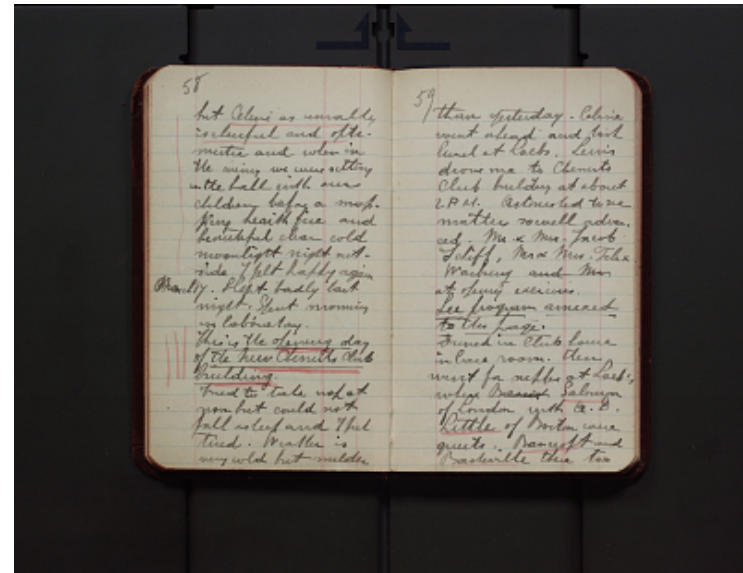 58
but Celine as usually
is cheerful and opti-
mistic and when in
the evening we were sitting
in the hall with our
children before a
fire and
beautiful clear cold
moonlight night out-
side I felt happy again
March 17. Slept badly last
night. Spent morning
in laboratory.
This is the opening day
of the new Chemists Club
building.
Tried to take nap at
noon but could not
fall asleep and I feel
tired. Weather is
very cold but milder
59
than yesterday. Celine
went ahead and took
lunch at Loebs. Lewis
drove me to Chemists
Club building at about
2 P.M. Astonished to see
matters so well advan-
ced. Mr & Mrs. Jacob
Schiff, Mr & Mrs. Felix
Warburg and Mrs
at opening exercises.
See program annexed
to this page.
Dined in Club house
in room. Then
went for supper at Loeb's,
where Salomon
of London with A. D.
Little of Boston were
guests. Bancroft and
Baskerville there too